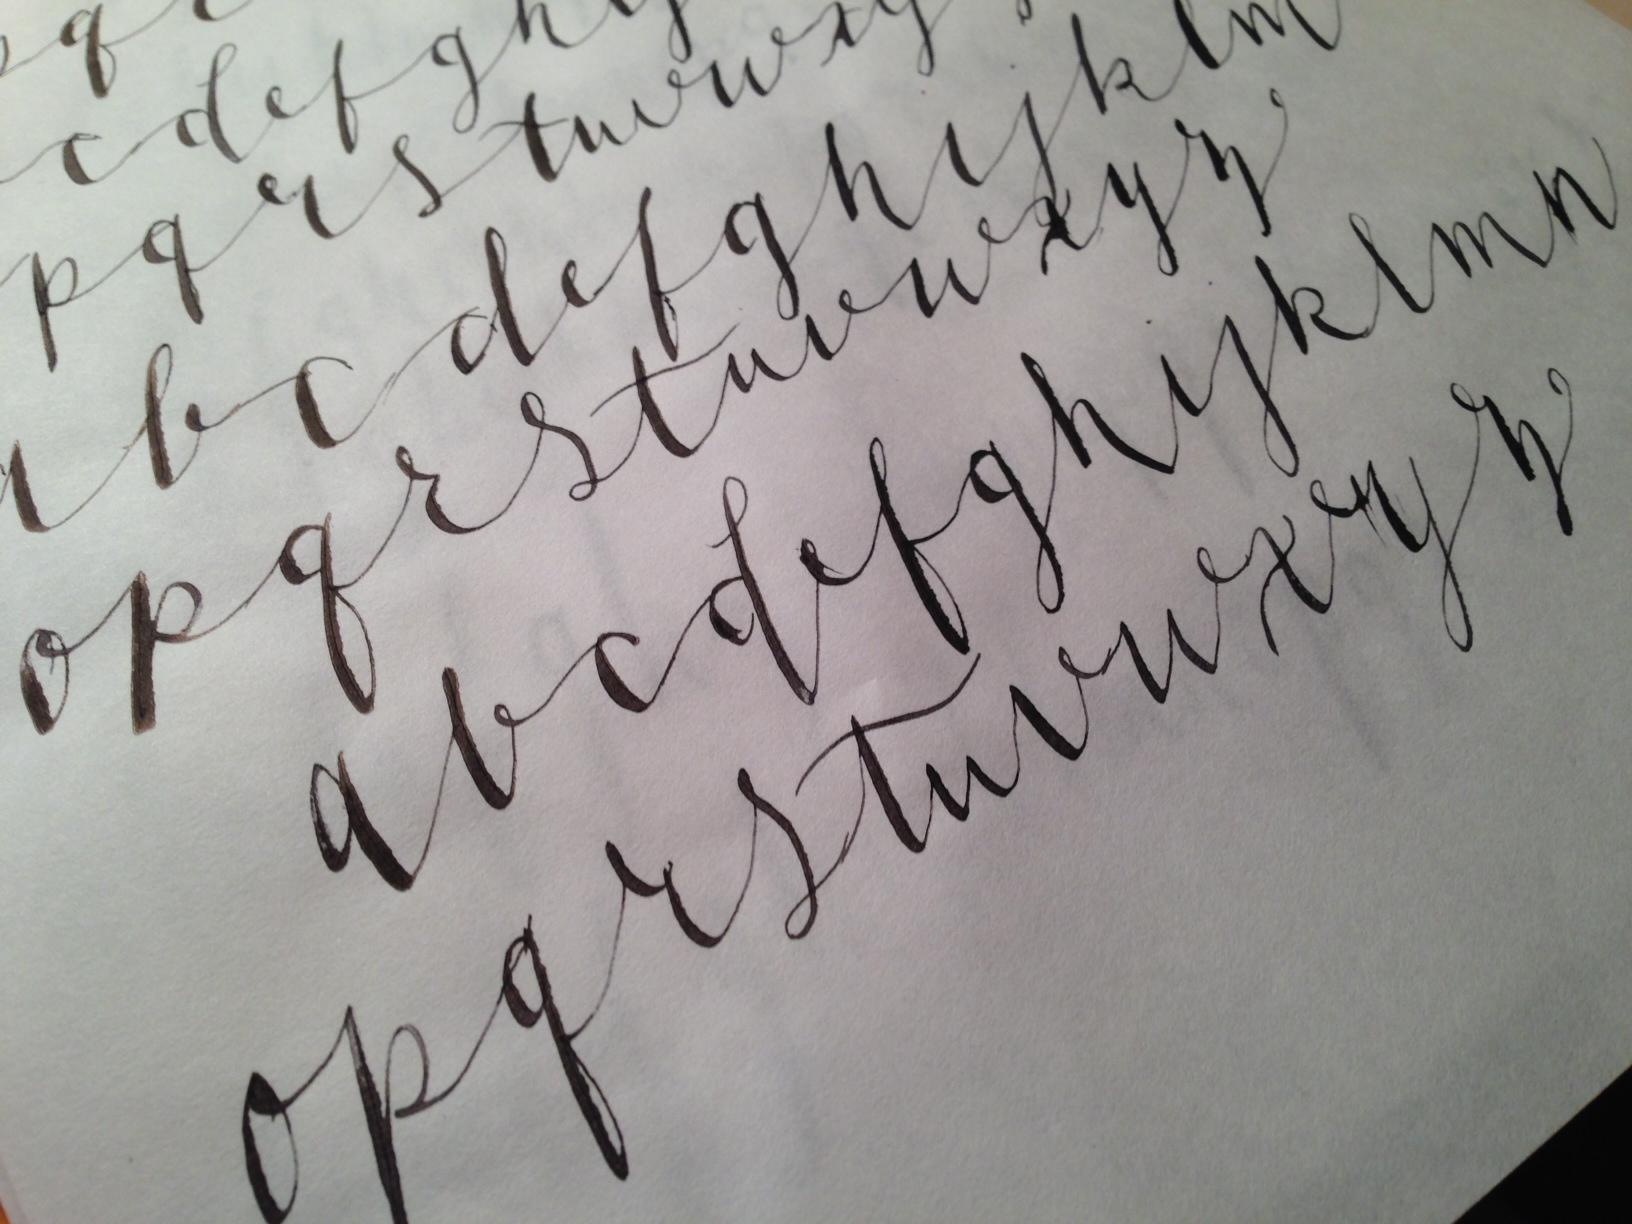 pqr
cdefghij
pqrstuvwxyz
abcdefghijklm
opqrstuvwxyz
abcdefghijklmn
opqrstuvwxyz